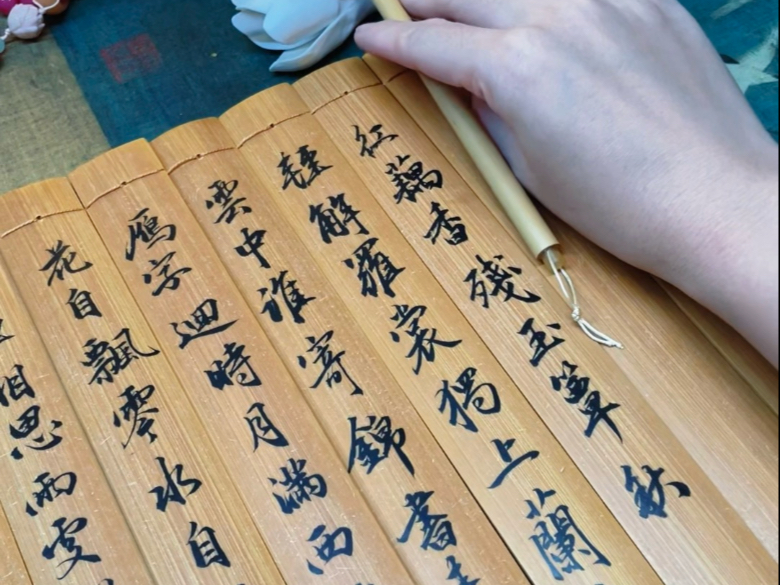 紅藕香殘玉簟秋
輕解羅裳獨上蘭
雲中誰寄錦書
鴈字迴時月滿西
花自飄零水自
相思兩處